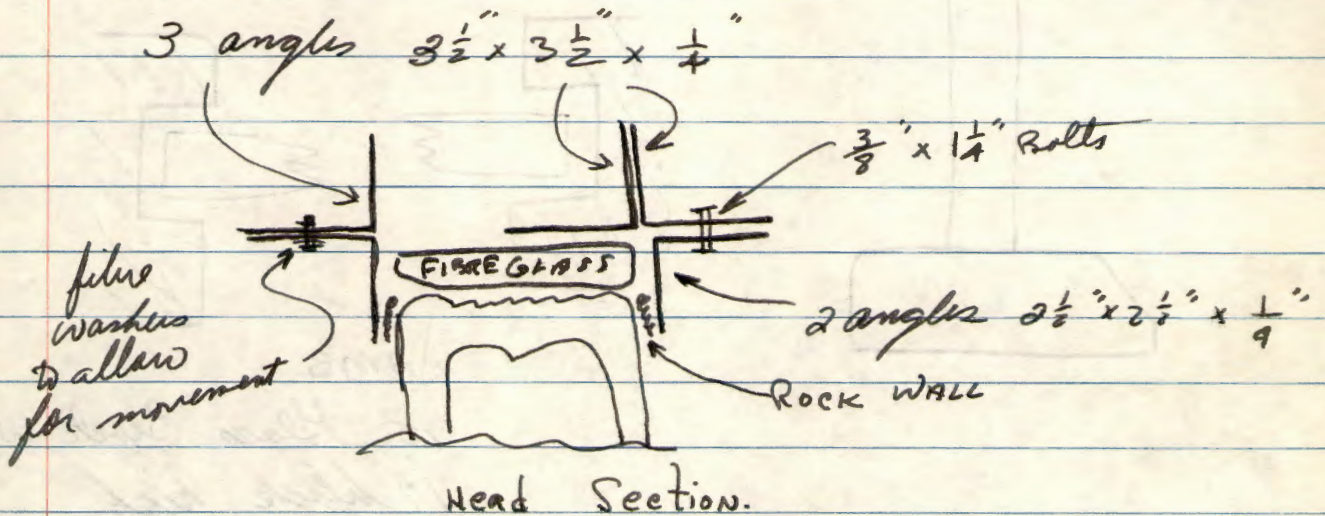 3 angles 3½" x 3½" x ¼"
3/8" x 1¼" Bolts
fibre
washers
to allow
for movement
FIBREGLASS
2 angles 2½" x 2½" x ¼"
ROCK WALL
Head Section.